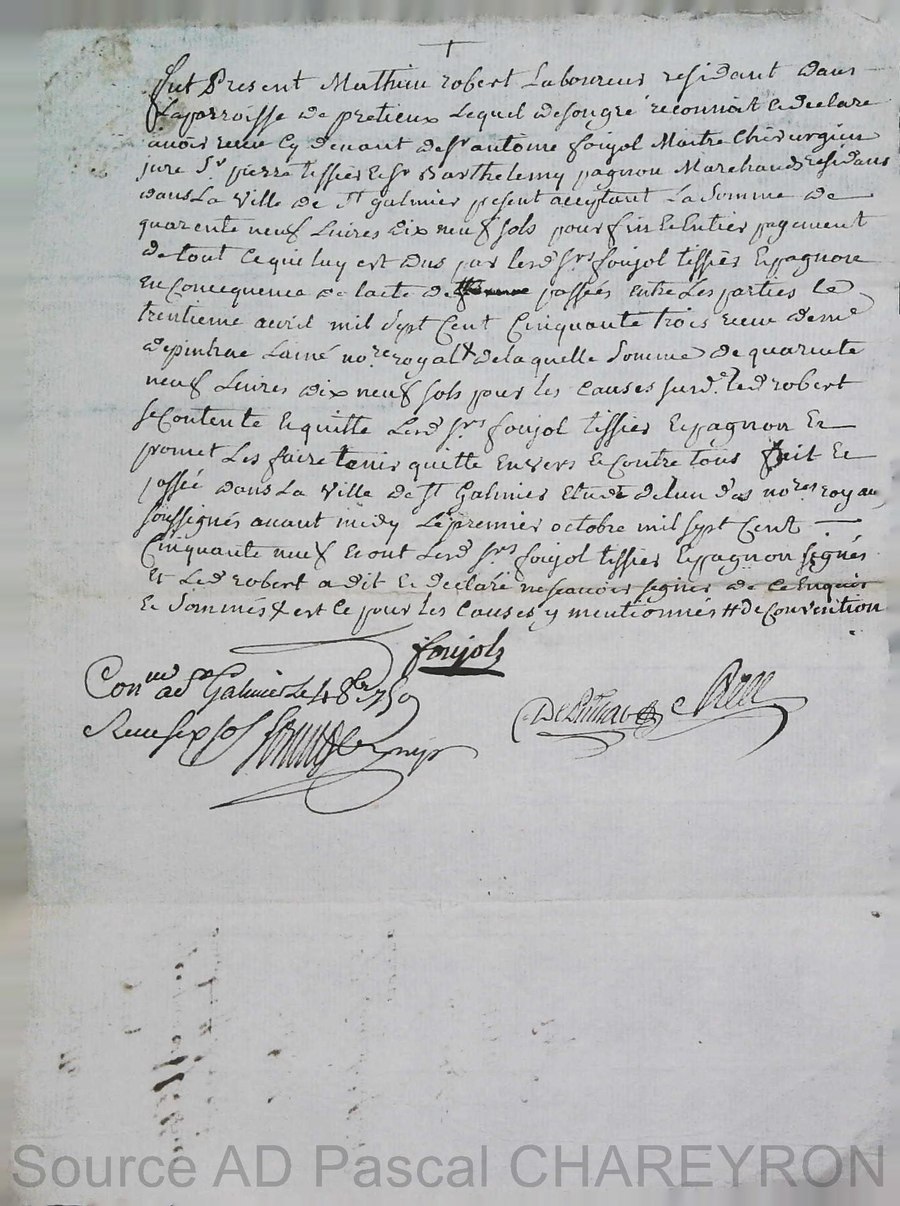 fut Present Mathieu robert Laboureur residant dans
La parroisse de pretieux Lequel de son gré reconnoit et declare
avoir receu cy devant de sr antoine foujol Maitre Chirurgien
juré Sr pierre tissier et sr Barthelemy pagnon Marchands residans
dans La ville de St galmier present acceptant La Somme de
quarente neuf Livres dix neuf sols pour fin et Entier payement
de tout Ce qui luy est dus par lesd srs foujol tissier et pagnon
en Concequence de lacte de passés entre Les parties le
trentieme avril mil Sept Cent Cinquante trois receu de me
depinhac Lainé nore royal de laquelle Somme de quarente
neuf Livres dix neuf sols pour les causes surde led robert
se Contente et quitte Lesd srs foujol tissier et pagnon et
promet Les faire tenir quitte envers et contre tous fait et
passé dans La ville de St Galmier Etude de lun des nores royau
soussignés avant midy Le premier octobre mil sept Cent
Cinquante neuf et ont Lesd srs foujol tissier et pagnon signés
et Led robert a dit et declaré ne scavoir signer de ce Enquis
et Sommés est ce pour les causes y mentionnés # de Convention
foujols
Conlle a St Galmier Le 4 8bre 1759
Receu six sols
Source AD Pascal CHAREYRON